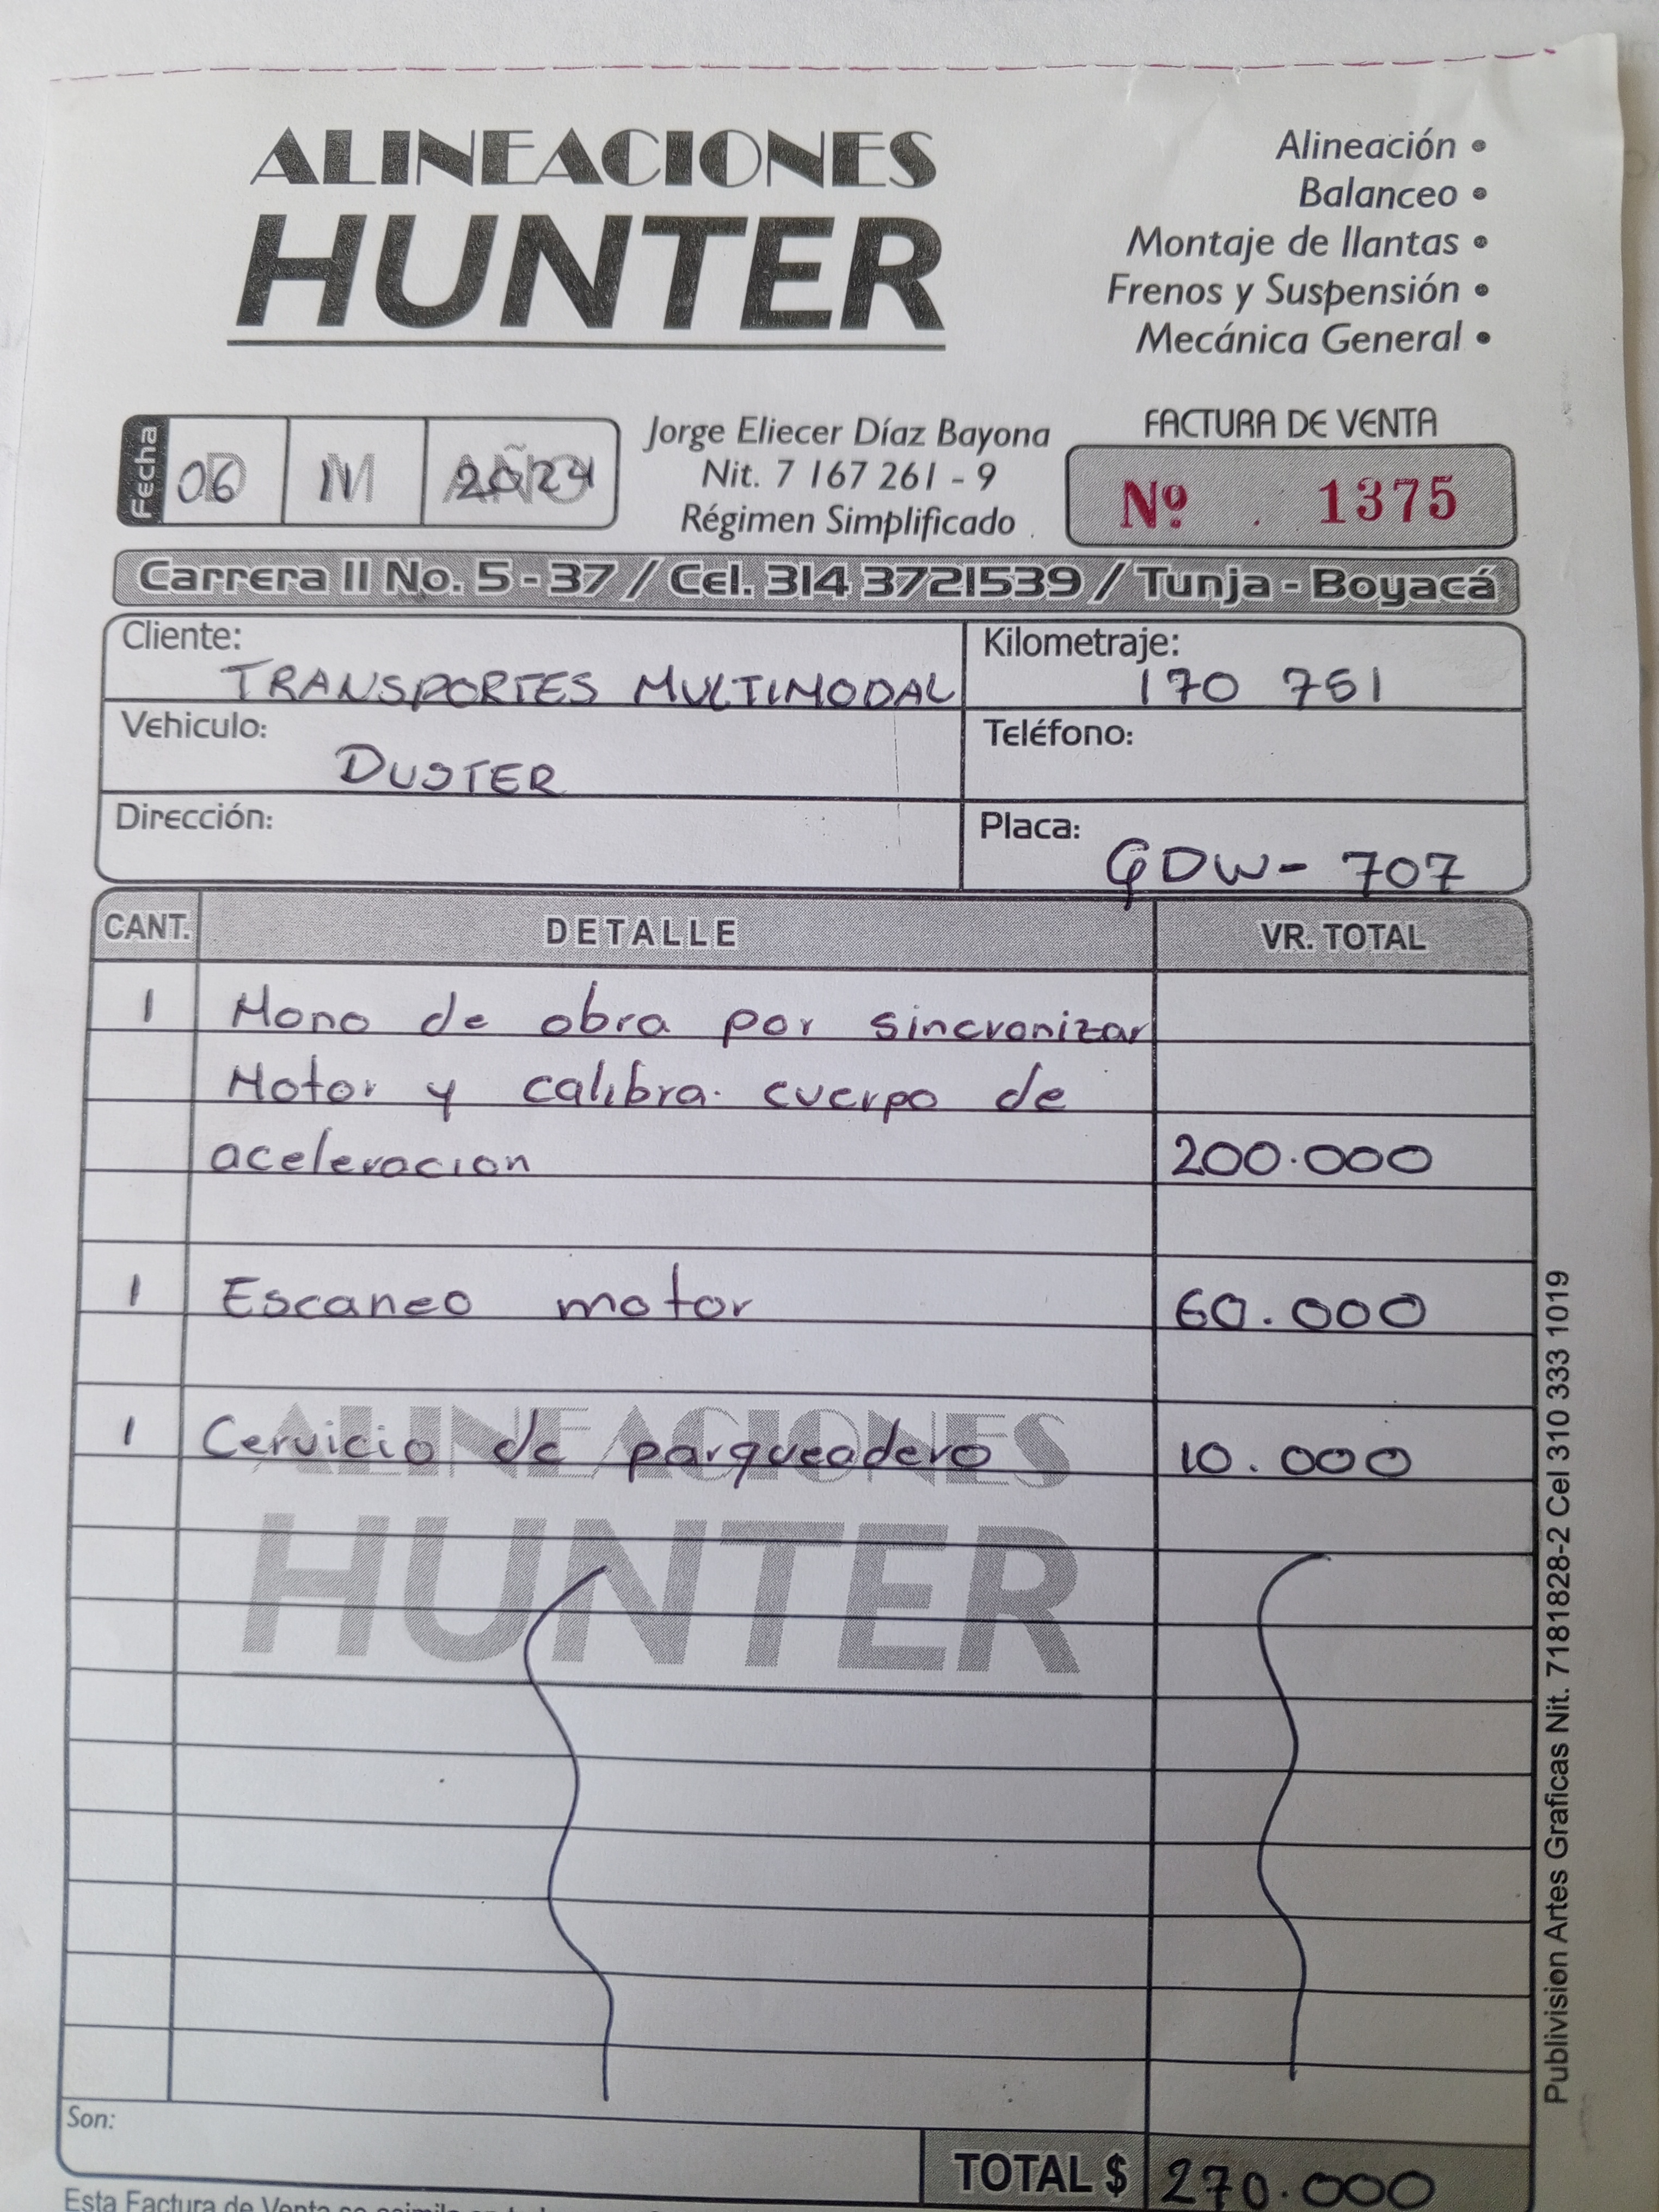 ALINEACIONES
HUNTER
Alineación •
Balanceo •
Montaje de llantas •
Frenos y Suspensión •
Mecánica General •
Fecha
D M AÑO
06 111 2024
Jorge Eliecer Díaz Bayona
Nit. 7 167 261 - 9
Régimen Simplificado
FACTURA DE VENTA
Nº 1375
Carrera 11 No. 5 - 37 / Cel. 314 3721539 / Tunja - Boyacá
Cliente: TRANSPORTES MULTIMODAL
Kilometraje: 170 751
Vehiculo: DUSTER
Teléfono:
Dirección:
Placa: GDW- 707
CANT. DETALLE VR. TOTAL
1 Mono de obra por sincronizar
Motor y calibra. cuerpo de
aceleracion 200.000
1 Escaneo motor 60.000
1 Cervicio de parqueadero 10.000
ALINEACIONES
HUNTER
Son:
TOTAL $ 270.000
Esta Factura de Venta se asimila en
Publivision Artes Graficas Nit. 7181828-2 Cel 310 333 1019